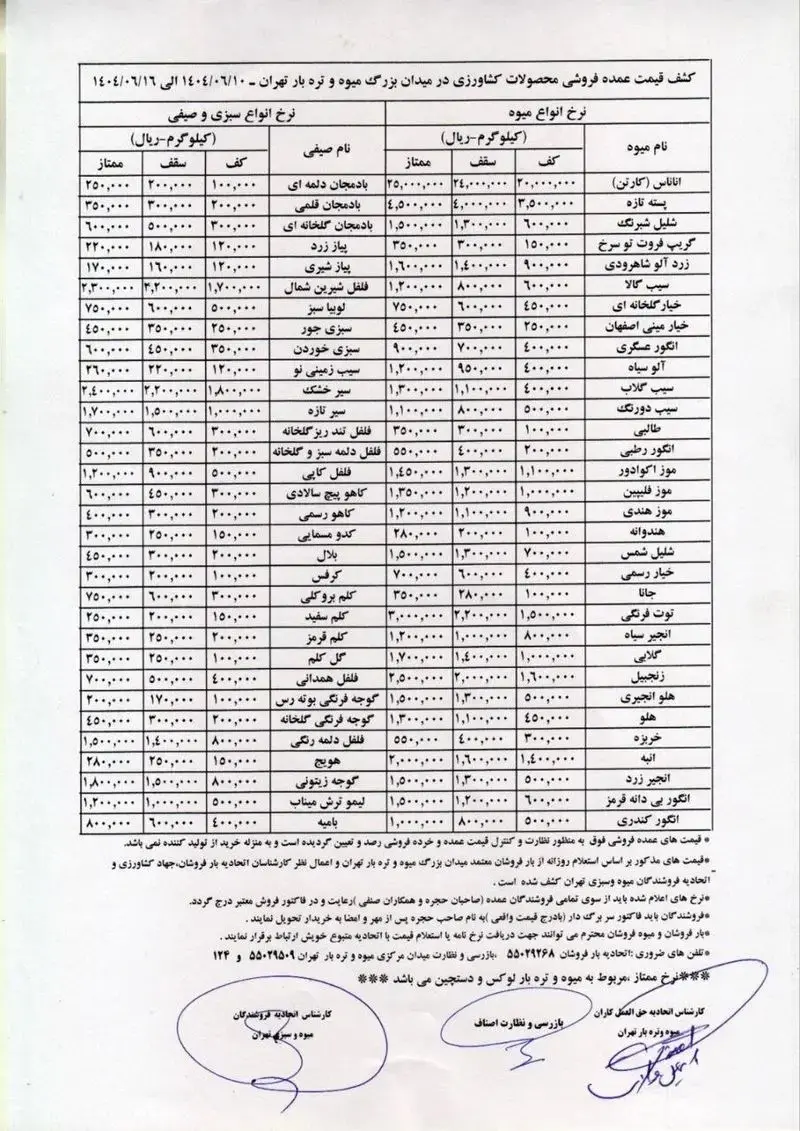 کشف قیمت عمده فروشی محصولات کشاورزی در میدان بزرگ میوه و تره بار تهران ـ ۱۴۰۴/۰۶/۱۰ الی ۱۴۰۴/۰۶/۱۶
نرخ انواع میوه نرخ انواع سبزی و صیفی
نام میوه (کیلوگرم-ریال) نام صیفی (کیلوگرم-ریال)
کف سقف ممتاز کف سقف ممتاز
اناناس (کارتن) ۲۰,۰۰۰,۰۰۰ ۲۴,۰۰۰,۰۰۰ ۲۵,۰۰۰,۰۰۰ بادمجان دلمه ای ۱۰۰,۰۰۰ ۲۰۰,۰۰۰ ۲۵۰,۰۰۰
پسته تازه ۳,۵۰۰,۰۰۰ ٤,۰۰۰,۰۰۰ ٤,۵۰۰,۰۰۰ بادمجان قلمی ۲۰۰,۰۰۰ ۳۰۰,۰۰۰ ۳۵۰,۰۰۰
شلیل شبرنگ ۶۰۰,۰۰۰ ۱,۳۰۰,۰۰۰ ۱,۵۰۰,۰۰۰ بادمجان گلخانه ای ۳۰۰,۰۰۰ ۵۰۰,۰۰۰ ۶۰۰,۰۰۰
گریپ فروت تو سرخ ۱۵۰,۰۰۰ ۳۰۰,۰۰۰ ۳۵۰,۰۰۰ پیاز زرد ۱۲۰,۰۰۰ ۱۸۰,۰۰۰ ۲۲۰,۰۰۰
زرد آلو شاهرودی ۹۰۰,۰۰۰ ۱,٤۰۰,۰۰۰ ۱,۶۰۰,۰۰۰ پیاز شیری ۱۲۰,۰۰۰ ۱۶۰,۰۰۰ ۱۷۰,۰۰۰
سیب گالا ۶۰۰,۰۰۰ ۸۰۰,۰۰۰ ۱,۲۰۰,۰۰۰ فلفل شیرین شمال ۱,۷۰۰,۰۰۰ ۲,۲۰۰,۰۰۰ ۲,۳۰۰,۰۰۰
خیارگلخانه ای ٤۵۰,۰۰۰ ۶۰۰,۰۰۰ ۷۵۰,۰۰۰ لوبیا سبز ۵۰۰,۰۰۰ ۶۰۰,۰۰۰ ۷۵۰,۰۰۰
خیار مینی اصفهان ۲۵۰,۰۰۰ ۳۵۰,۰۰۰ ٤۵۰,۰۰۰ سبزی جور ۲۵۰,۰۰۰ ۳۵۰,۰۰۰ ٤۵۰,۰۰۰
انگور عسگری ٤۰۰,۰۰۰ ۷۰۰,۰۰۰ ۹۰۰,۰۰۰ سبزی خوردن ۳۵۰,۰۰۰ ٤۵۰,۰۰۰ ۶۰۰,۰۰۰
آلو سیاه ٤۰۰,۰۰۰ ۹۵۰,۰۰۰ ۱,۲۰۰,۰۰۰ سیب زمینی نو ۱۲۰,۰۰۰ ۲۲۰,۰۰۰ ۲۶۰,۰۰۰
سیب گلاب ٤۰۰,۰۰۰ ۱,۱۰۰,۰۰۰ ۱,۳۰۰,۰۰۰ سیر خشک ۱,۸۰۰,۰۰۰ ۲,۲۰۰,۰۰۰ ۲,٤۰۰,۰۰۰
سیب دورنگ ۵۰۰,۰۰۰ ۸۰۰,۰۰۰ ۱,۱۰۰,۰۰۰ سیر تازه ۱,۰۰۰,۰۰۰ ۱,۵۰۰,۰۰۰ ۱,۷۰۰,۰۰۰
طالبی ۱۰۰,۰۰۰ ۳۰۰,۰۰۰ ۳۵۰,۰۰۰ فلفل تند ریزگلخانه ۳۰۰,۰۰۰ ۶۰۰,۰۰۰ ۷۰۰,۰۰۰
انگور رطبی ۲۰۰,۰۰۰ ٤۰۰,۰۰۰ ۵۵۰,۰۰۰ فلفل دلمه سبز و گلخانه ۲۰۰,۰۰۰ ۳۵۰,۰۰۰ ۵۰۰,۰۰۰
موز اکوادور ۱,۱۰۰,۰۰۰ ۱,۳۰۰,۰۰۰ ۱,٤۵۰,۰۰۰ فلفل کاپی ۵۰۰,۰۰۰ ۹۰۰,۰۰۰ ۱,۲۰۰,۰۰۰
موز فلیپین ۱,۰۰۰,۰۰۰ ۱,۲۰۰,۰۰۰ ۱,۳۵۰,۰۰۰ کاهو پیچ سالادی ۳۰۰,۰۰۰ ٤۵۰,۰۰۰ ۶۰۰,۰۰۰
موز هندی ۹۰۰,۰۰۰ ۱,۱۰۰,۰۰۰ ۱,۲۰۰,۰۰۰ کاهو رسمی ۲۰۰,۰۰۰ ۳۰۰,۰۰۰ ٤۰۰,۰۰۰
هندوانه ۱۰۰,۰۰۰ ۲۰۰,۰۰۰ ۲۸۰,۰۰۰ کدو مسمایی ۱۵۰,۰۰۰ ۲۵۰,۰۰۰ ۳۰۰,۰۰۰
شلیل شمس ۷۰۰,۰۰۰ ۱,۳۰۰,۰۰۰ ۱,۵۰۰,۰۰۰ بلال ۲۰۰,۰۰۰ ۳۰۰,۰۰۰ ٤۵۰,۰۰۰
خیار رسمی ٤۰۰,۰۰۰ ۶۰۰,۰۰۰ ۷۰۰,۰۰۰ کرفس ۱۰۰,۰۰۰ ۲۰۰,۰۰۰ ۳۰۰,۰۰۰
جانا ۱۰۰,۰۰۰ ۲۸۰,۰۰۰ ۳۵۰,۰۰۰ کلم بروکلی ۳۰۰,۰۰۰ ۶۰۰,۰۰۰ ۷۵۰,۰۰۰
توت فرنگی ۱,۵۰۰,۰۰۰ ۲,۲۰۰,۰۰۰ ۳,۰۰۰,۰۰۰ کلم سفید ۱۵۰,۰۰۰ ۲۰۰,۰۰۰ ۲۵۰,۰۰۰
انجیر سیاه ۸۰۰,۰۰۰ ۱,۰۰۰,۰۰۰ ۱,۲۰۰,۰۰۰ کلم قرمز ۲۰۰,۰۰۰ ۲۵۰,۰۰۰ ۳۵۰,۰۰۰
گلابی ۱,۰۰۰,۰۰۰ ۱,٤۰۰,۰۰۰ ۱,۷۰۰,۰۰۰ گل کلم ۱۰۰,۰۰۰ ۲۵۰,۰۰۰ ۳۵۰,۰۰۰
زنجبیل ۱,۶۰۰,۰۰۰ ۲,۰۰۰,۰۰۰ ۲,۵۰۰,۰۰۰ فلفل همدانی ٤۰۰,۰۰۰ ۵۰۰,۰۰۰ ۷۰۰,۰۰۰
هلو انجیری ۵۰۰,۰۰۰ ۱,۳۰۰,۰۰۰ ۱,۵۰۰,۰۰۰ گوجه فرنگی بوته رس ۱۰۰,۰۰۰ ۱۷۰,۰۰۰ ۲۰۰,۰۰۰
هلو ٤۵۰,۰۰۰ ۱,۱۰۰,۰۰۰ ۱,۳۰۰,۰۰۰ گوجه فرنگی گلخانه ۲۰۰,۰۰۰ ۳۰۰,۰۰۰ ٤۵۰,۰۰۰
خربزه ۳۰۰,۰۰۰ ٤۰۰,۰۰۰ ۵۵۰,۰۰۰ فلفل دلمه رنگی ۸۰۰,۰۰۰ ۱,٤۰۰,۰۰۰ ۱,۵۰۰,۰۰۰
انبه ۱,٤۰۰,۰۰۰ ۱,۶۰۰,۰۰۰ ۲,۰۰۰,۰۰۰ هویج ۱۵۰,۰۰۰ ۲۵۰,۰۰۰ ۲۸۰,۰۰۰
انجیر زرد ۵۰۰,۰۰۰ ۱,۳۰۰,۰۰۰ ۱,۵۰۰,۰۰۰ گوجه زیتونی ۸۰۰,۰۰۰ ۱,۵۰۰,۰۰۰ ۱,۸۰۰,۰۰۰
انگور بی دانه قرمز ۶۰۰,۰۰۰ ۱,۲۰۰,۰۰۰ ۱,۵۰۰,۰۰۰ لیمو ترش میناب ۵۰۰,۰۰۰ ۱,۰۰۰,۰۰۰ ۱,۲۰۰,۰۰۰
انگور کندری ۵۰۰,۰۰۰ ۸۰۰,۰۰۰ ۱,۰۰۰,۰۰۰ بامیه ٤۰۰,۰۰۰ ۶۰۰,۰۰۰ ۸۰۰,۰۰۰
* قیمت های عمده فروشی فوق به منظور نظارت و کنترل قیمت عمده و خرده فروشی رصد و تعیین گردیده است و به منزله خرید از تولید کننده نمی باشد.
*قیمت های مذکور بر اساس استعلام روزانه از بار فروشان معتمد میدان بزرگ میوه و تره بار تهران و اعمال نظر کارشناسان اتحادیه بار فروشان،جهاد کشاورزی و
اتحادیه فروشندگان میوه وسبزی تهران کشف شده است .
*نرخ های اعلام شده باید از سوی تمامی فروشندگان عمده (صاحبان حجره و همکاران صنفی )رعایت و در فاکتور فروش معتبر درج گردد.
*فروشندگان باید فاکتور سر برگ دار (بادرج قیمت واقعی )به نام صاحب حجره پس از مهر و امضا به خریدار تحویل نمایند .
*بار فروشان و میوه فروشان محترم می توانند جهت دریافت نرخ نامه یا استعلام قیمت با اتحادیه متبوع خویش ارتباط برقرار نمایند .
*تلفن های ضروری :اتحادیه بار فروشان ۵۵۰۲۹۲۶۸ ،بازرسی و نظارت میدان مرکزی میوه و تره بار تهران ۵۵۰۲۹۵۰۹ و ۱۲۴
***نرخ ممتاز ،مربوط به میوه و تره بار لوکس و دستچین می باشد ***
کارشناس اتحادیه حق العمل کاران
میوه وتره بار تهران
بازرسی و نظارت اصناف
کارشناس اتحادیه فروشندگان
میوه و سبزی تهران